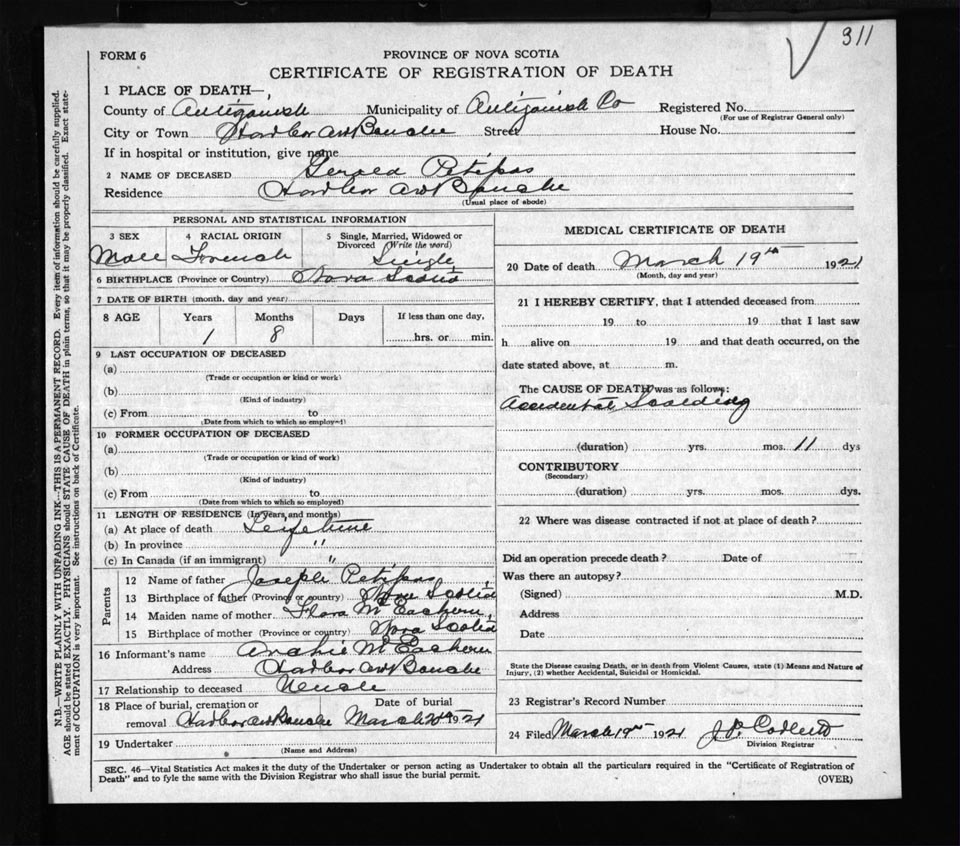 311
FORM 6
PROVINCE OF NOVA SCOTIA
CERTIFICATE OF REGISTRATION OF DEATH
1 PLACE OF DEATH—
County of Antigonish Municipality of Antigonish Co Registered No.
(For use of Registrar General only)
City or Town Harbor au Bouche Street House No.
If in hospital or institution, give name
2 NAME OF DECEASED Gerald Petipas
Residence Harbor au Bouche
(Usual place of abode)
PERSONAL AND STATISTICAL INFORMATION
3 SEX 4 RACIAL ORIGIN 5 Single, Married, Widowed or Divorced (Write the word)
Male French Single
6 BIRTHPLACE (Province or Country) Nova Scotia
7 DATE OF BIRTH (month, day and year)
8 AGE Years Months Days If less than one day,
1 8 hrs. or min.
9 LAST OCCUPATION OF DECEASED
(a)
(Trade or occupation or kind or work)
(b)
(Kind of industry)
(c) From to
(Date from which to which so employed)
10 FORMER OCCUPATION OF DECEASED
(a)
(Trade or occupation or kind of work)
(b)
(Kind of industry)
(c) From to
(Date from which to which so employed)
11 LENGTH OF RESIDENCE (In years and months)
(a) At place of death Lifetime
(b) In province "
(c) In Canada (if an immigrant) "
Parents
12 Name of father Joseph Petipas
13 Birthplace of father (Province or country) Nova Scotia
14 Maiden name of mother Flora McEachern
15 Birthplace of mother (Province or country) Nova Scotia
16 Informant's name Archie McEachern
Address Harbor au Bouche
17 Relationship to deceased
18 Place of burial, cremation or removal Harbor au Bouche Date of burial March 20th 1921
19 Undertaker
(Name and Address)
MEDICAL CERTIFICATE OF DEATH
20 Date of death March 19th 1921
(Month, day and year)
21 I HEREBY CERTIFY, that I attended deceased from
19 to 19 that I last saw
h alive on 19 and that death occurred, on the
date stated above, at m.
The CAUSE OF DEATH was as follows:
Accidental Scalding
(duration) yrs. mos. 11 dys
CONTRIBUTORY
(Secondary)
(duration) yrs. mos. dys.
22 Where was disease contracted if not at place of death?
Did an operation precede death? Date of
Was there an autopsy?
(Signed) M.D.
Address
Date
State the Disease causing Death, or in death from Violent Causes, state (1) Means and Nature of
Injury, (2) whether Accidental, Suicidal or Homicidal.
23 Registrar's Record Number
24 Filed March 19th 1921 J.P.
Division Registrar
SEC. 46—Vital Statistics Act makes it the duty of the Undertaker or person acting as Undertaker to obtain all the particulars required in the "Certificate of Registration of
Death" and to fyle the same with the Division Registrar who shall issue the burial permit.
(OVER)
N.B.—WRITE PLAINLY WITH UNFADING INK—THIS IS A PERMANENT RECORD. Every item of information should be carefully supplied.
AGE should be stated EXACTLY. PHYSICIANS should STATE CAUSE OF DEATH in plain terms, so that it may be properly classified. Exact state-
ment of OCCUPATION is very important. See instructions on back of Certificate.